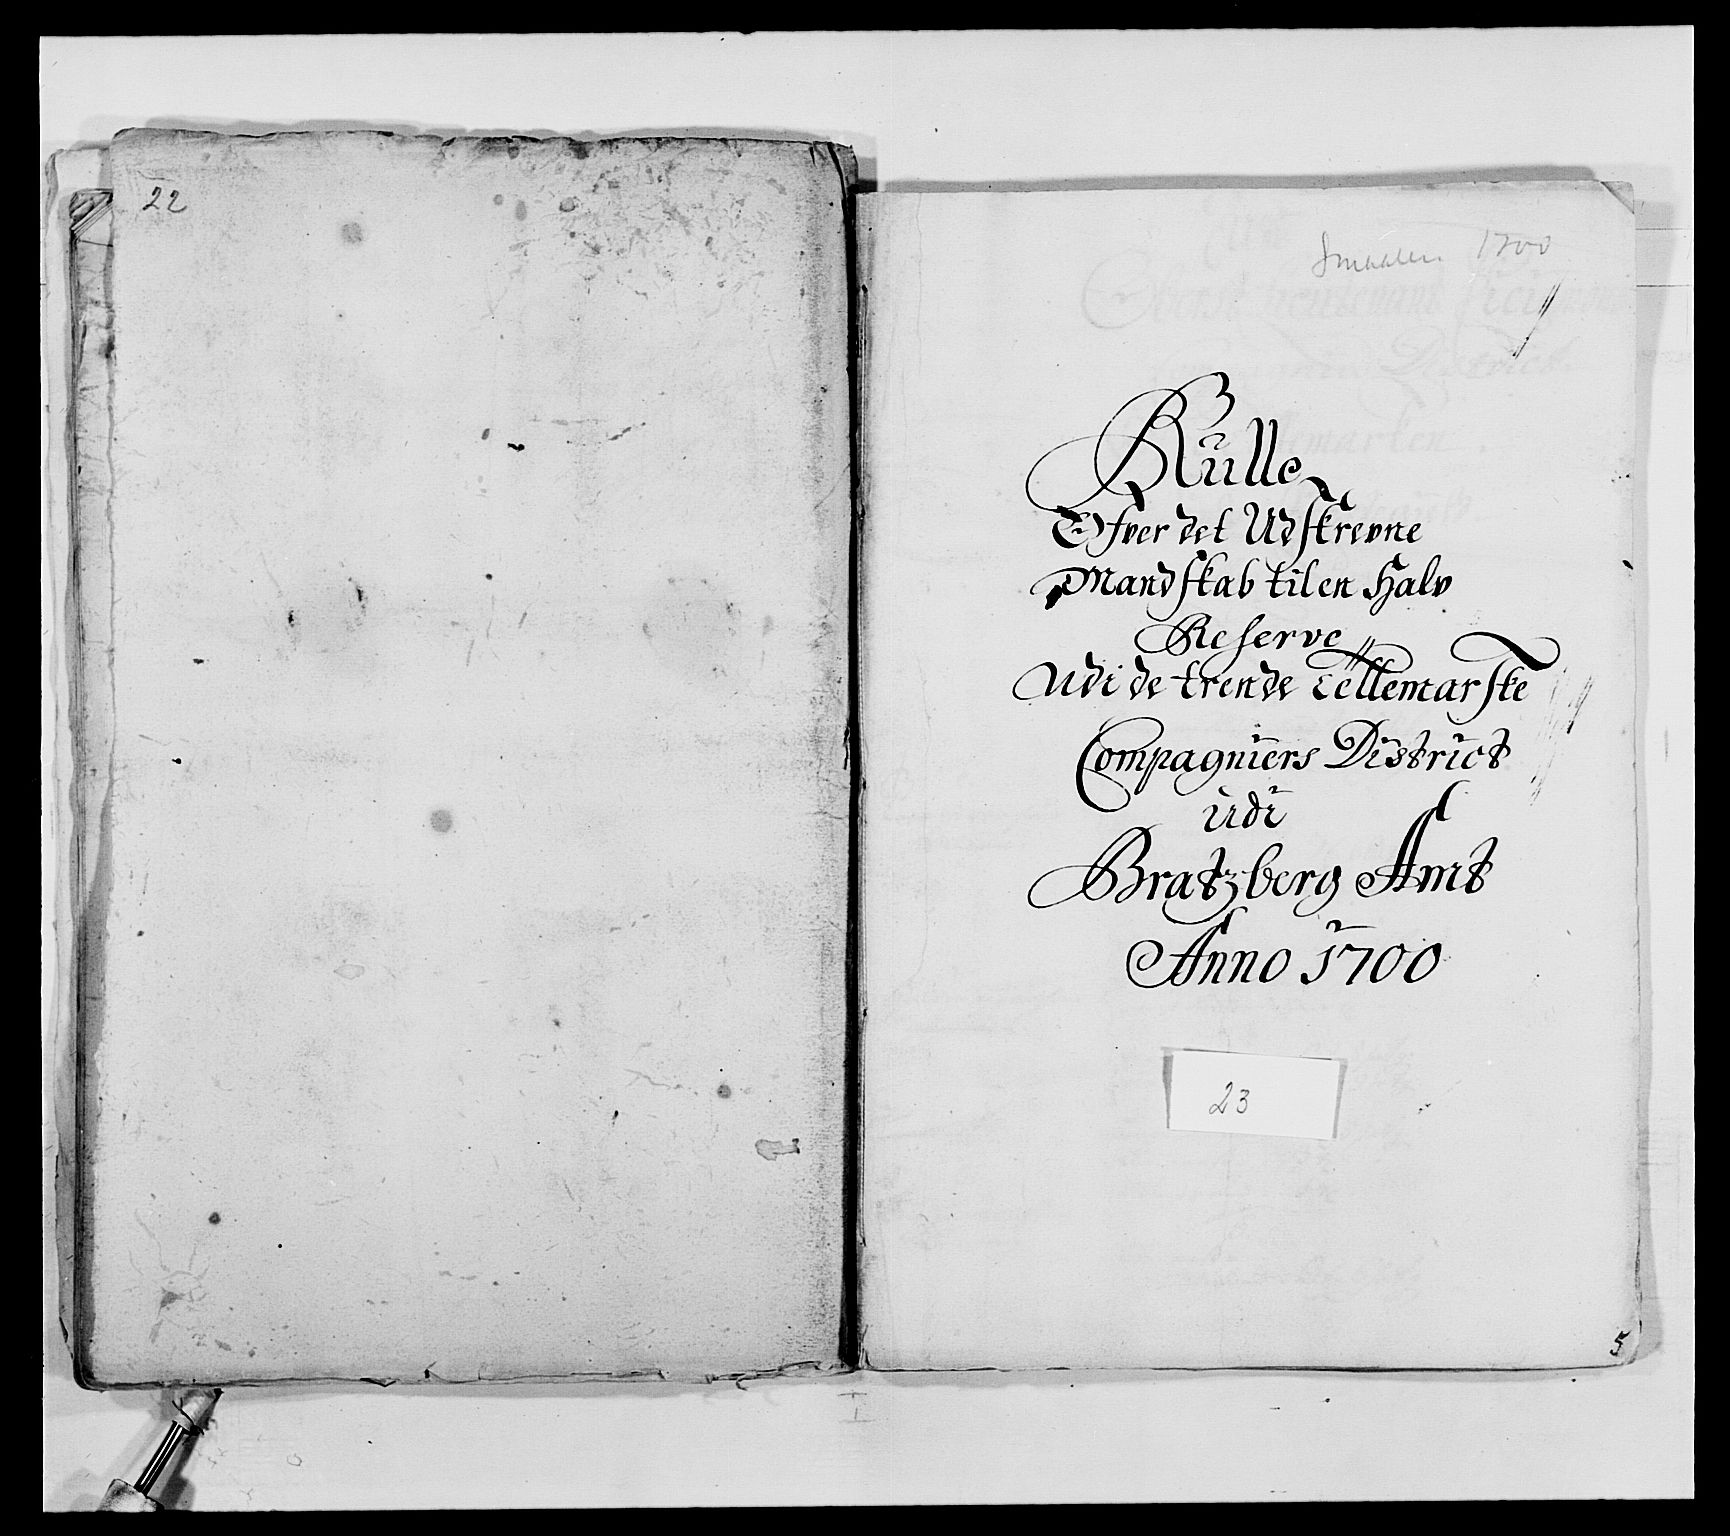 22
1700
Rulle
Ofver det Udskrevne
Mandskab til en Halv
Reserve
Udi de trende Tellemarske
Compagniers District
udi
Bratzberg Amt
Anno 1700
23
5